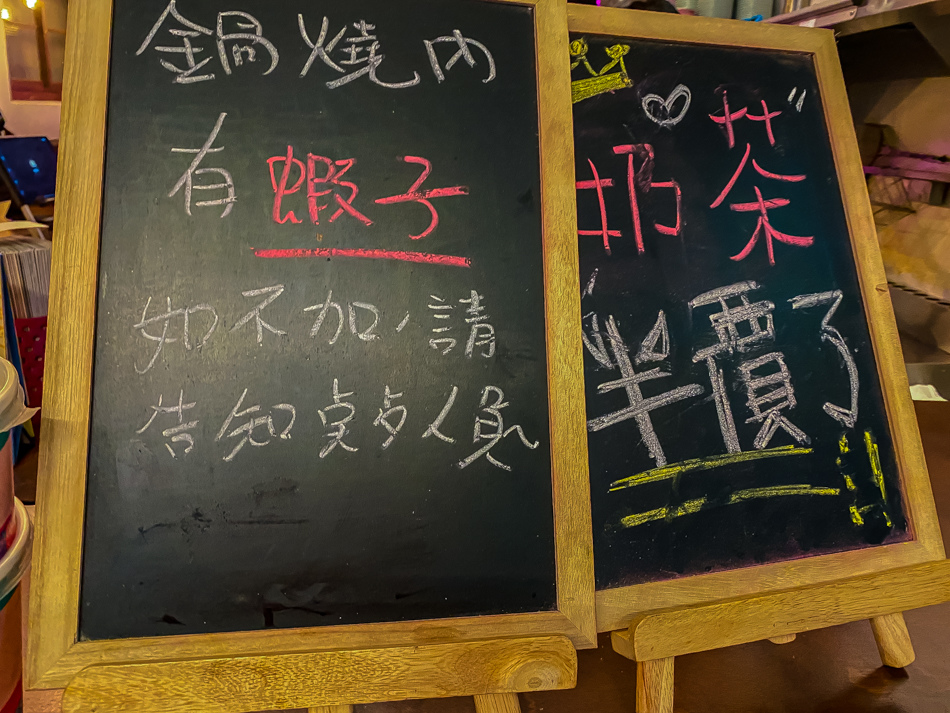 鍋燒內
有蝦子
如不加,請
告知奌歺人員
奶茶
半價了!!